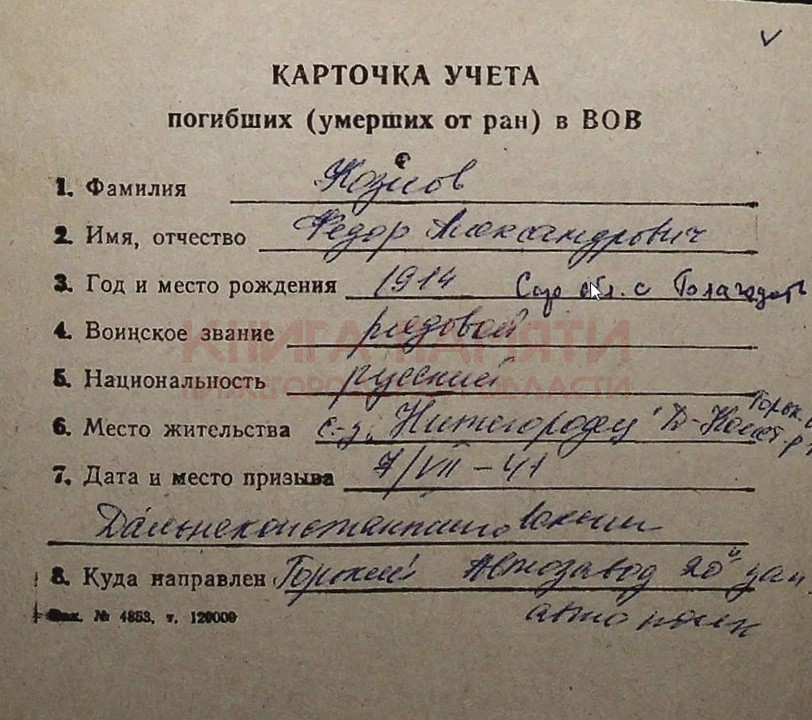 КАРТОЧКА УЧЕТА
погибших (умерших от ран) в ВОВ
1. Фамилия Козлов
2. Имя, отчество Федор Александрович
3. Год и место рождения 1914 обл. с
4. Воинское звание рядовой
КНИГА ПАМЯТИ
5. Национальность русский
НИЖЕГОРОДСКОЙ ОБЛАСТИ
6. Место жительства с-з. Нижегородец Д-Конст. р
7. Дата и место призыва 7/VII-41
Дальнеконстантиновским
8. Куда направлен Горький Автозавод 20 зап
Зак. № 4853, т. 120000 авто полк